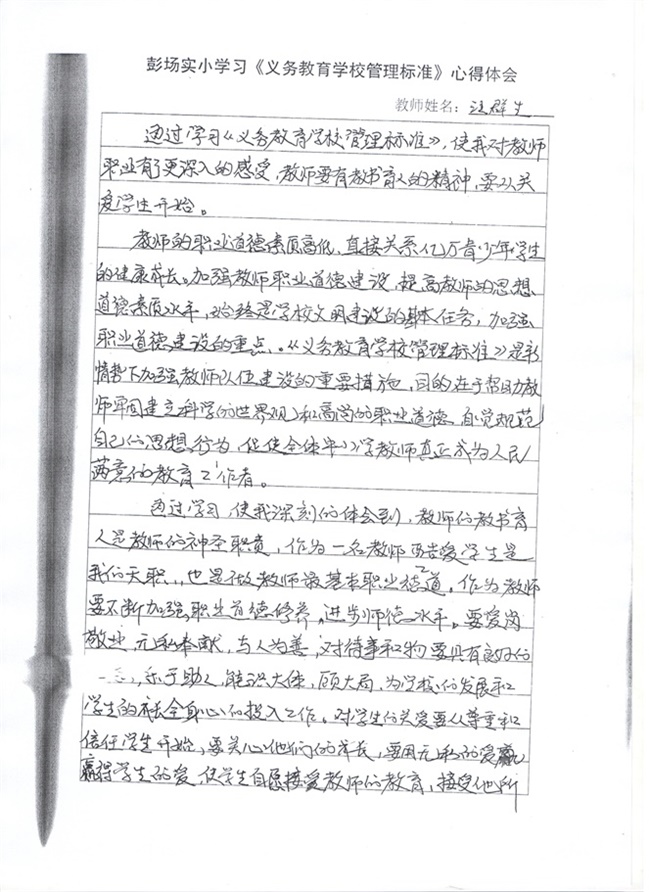 彭场实小学习《义务教育学校管理标准》心得体会
教师姓名：汪群生
通过学习《义务教育学校管理标准》，使我对教师
职业有了更深入的感受，教师要有教书育人的精神，要从关
爱学生开始。
教师的职业道德素质高低，直接关系亿万青少年学生
的健康成长。加强教师职业道德建设，提高教师的思想
道德素质水平，始终是学校文明建设的基本任务，加强
职业道德建设的重点。《义务教育学校管理标准》是新
情势下加强教师队伍建设的重要措施，目的在于帮助教
师牢固建立科学的世界观和高尚的职业道德。自觉规范
自己的思想行为，促使全体中小学教师真正成为人民
满意的教育工作者。
通过学习，使我深刻的体会到，教师的教书育
人是教师的神圣职责，作为一名教师 热爱学生是
我们天职，也是做教师最基本职业德道。作为教师
要不断加强职业道德修养。进步师德水平。要爱岗
敬业，无私奉献，与人为善，对待事和物要具有良好的
，乐于助人，能识大体，顾大局，为学校的发展和
学生的成长全身心的投入工作。对学生的关爱要从尊重和
信任学生开始，要关心他们的成长，要用无私的爱
赢得学生的爱，使学生自愿接受教师的教育，接受他所